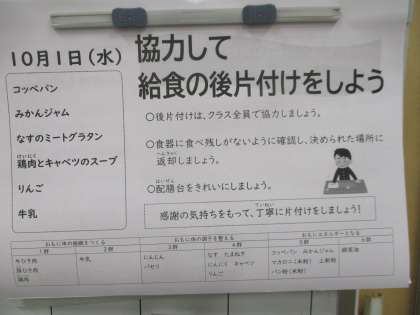 10月1日(水)
協力して
給食の後片付けをしよう
コッペパン
みかんジャム
なすのミートグラタン
けいにく
鶏肉とキャベツのスープ
りんご
牛乳
○後片付けは、クラス全員で協力しましょう。
○食器に食べ残しがないように確認し、決められた場所に
へんきゃく
返却しましょう。
はいぜん
○配膳台をきれいにしましょう。
ていねい
感謝の気持ちをもって、丁寧に片付けをしましょう!
おもに体の組織をつくる
おもに体の調子を整える
おもにエネルギーとなる
1群 2群 3群 4群 5群 6群
牛ひき肉
豚ひき肉
鶏肉
牛乳
にんじん
パセリ
なす たまねぎ
にんにく キャベツ
りんご
コッペパン みかんジャム
マカロニ(米粉) 上新粉
パン粉(米粉)